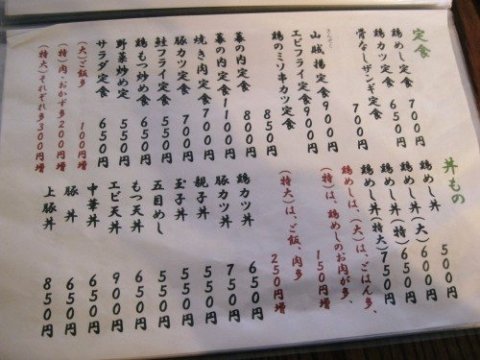 定食
鶏めし定食 700円
鶏カツ定食 650円
骨なしザンギ定食
さんぞく
山賊揚定食 900円
エビフライ定食 900円
鶏のミソ串カツ定食 850円
幕の内定食 800円
幕の内定食 1100円
焼き肉定食 700円
豚カツ定食 700円
鮭フライ定食 550円
鶏もつ炒め定食 650円
野菜炒め定 550円
サラダ定食 550円
(大)ご飯多 100円増
(特)肉・おかず多 200円増
(特大)それぞれ多 300円増
丼もの
鶏めし丼 500円
鶏めし丼(大) 600円
鶏めし丼(特) 650円
鶏めし丼(特大) 750円
鶏めしは、(大)は、ごはん多、
(特)は、鶏めしのお肉が多、
150円増
(特大)は、ご飯、肉多
250円増
鶏カツ丼 650円
豚カツ丼 750円
親子丼 550円
玉子丼 550円
五目めし 550円
もつ天丼 650円
エビ天丼 900円
中華丼 650円
豚丼 650円
上豚丼 850円